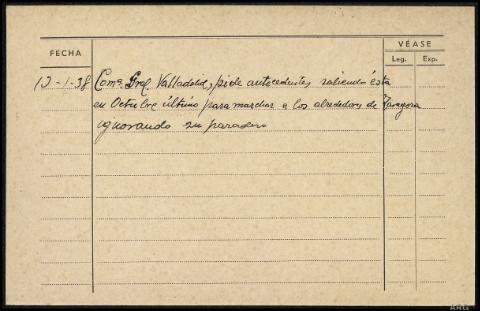 FECHA
VÉASE
Leg. Exp.
13-1-38 Comª. Gral. Valladolid, pide antecedentes, saliendo ésta
en Octubre último para marchar a los alrededores de Zaragoza
ignorando su paradero
ARG